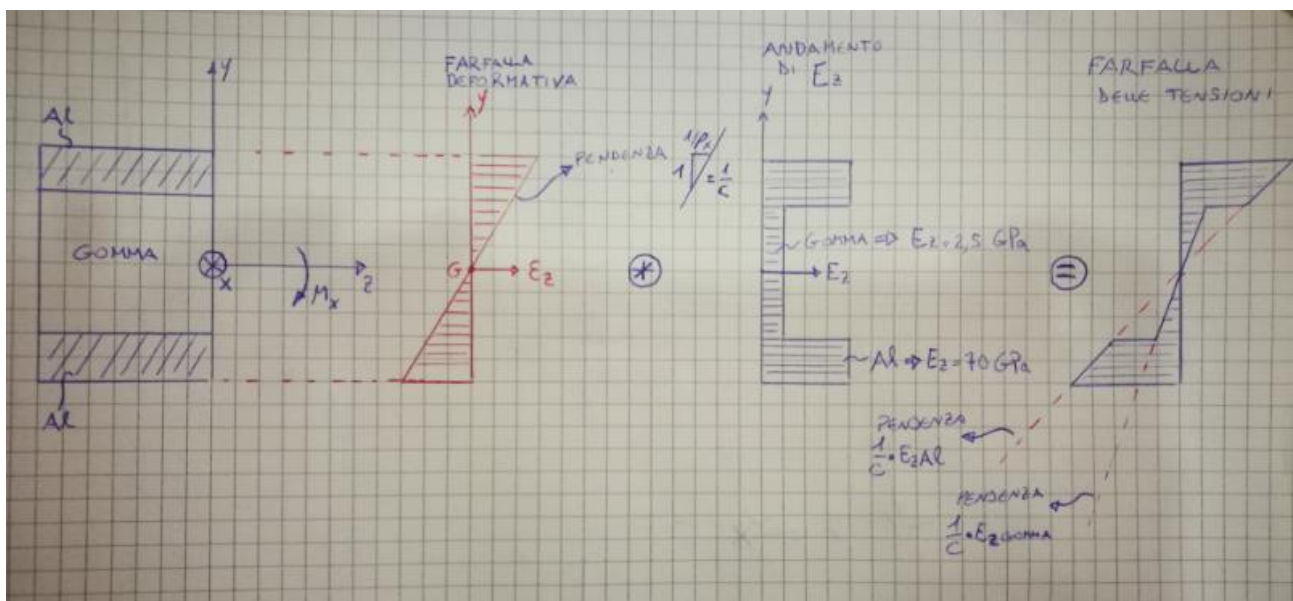 Al
GOMMA
Al
y
x
z
Mx
FARFALLA
DEFORMATIVA
y
G
Ez
PENDENZA
1/ρx
1
= 1/C
*
ANDAMENTO
DI Ez
y
GOMMA => Ez=2,5 GPa
Ez
Al => Ez=70 GPa
=
FARFALLA
DELLE TENSIONI
PENDENZA
1/C • Ez Al
PENDENZA
1/C • Ez GOMMA